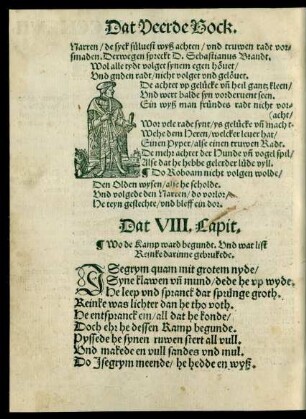 Dat Veerde Bock.
Narren / de syck sůluest wyß achten / vnd truwen radt vor-
smaden. Derwegen spreckt D. Sebastianus Brandt.
Wol alle tydt volget synem egen höuet /
Vnd guden radt / nicht volget vnd gelöuet.
De achtet vp gelücke vñ heil gantz klein /
Vnd wert balde syn vorderuent seen.
Ein wyß man fründes radt nicht vor-
(acht /
Wor vele radt synt / ys gelücke vñ macht.
Wehe dem Heren / welcker leuer hat /
Einen Pyper / alse einen truwen Radt.
De mehr achtet der Hunde vñ vogel spil /
Alse dat he hebbe geleerder lüde vyll.
¶ Do Roboam nicht volgen wolde /
Den Olden wysen / alse he scholde.
Vnd volgede den Narren / do vorlor /
He teyn geslechte / vnd bleff ein dor.
Dat VIII. Capit.
¶ Wo de Kamp ward begunde. Vnd wat list
Reinke darinne gebrukede.
ISegrym quam mit grotem nyde /
Syne klawen vñ mund / dede he vp wyde.
He leep vnd spranck dat sprünge groth.
Reinke was lichter dan he tho voth.
He entspranck em / all dat he konde /
Doch ehr he dessen Kamp begunde.
Pyssede he synen ruwen stert all vull.
Vnd makede en vull sandes vnd mul.
Do Isegrym meende / he hedde en wyß.